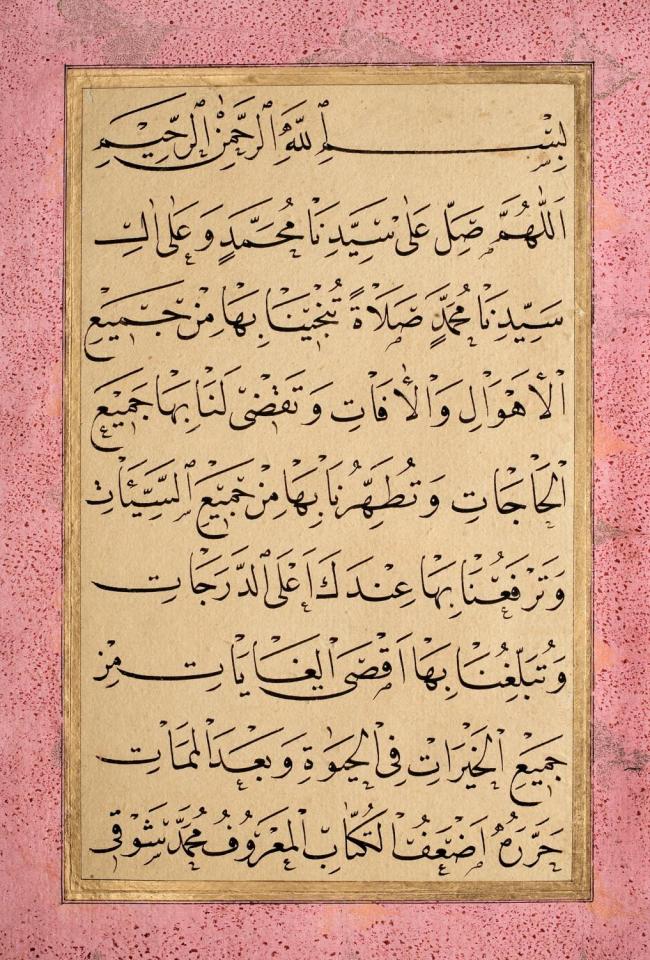 بِسْمِ اللهِ الرَّحْمٰنِ الرَّحِيمِ
اَللّٰهُمَّ صَلِّ عَلٰى سَيِّدِنَا مُحَمَّدٍ وَعَلٰى اٰلِ
سَيِّدِنَا مُحَمَّدٍ صَلَاةً تُنْجِينَا بِهَا مِنْ جَمِيعِ
الْاَهْوَالِ وَالْاٰفَاتِ وَتَقْضٖى لَنَا بِهَا جَمِيعَ
الْحَاجَاتِ وَتُطَهِّرُنَا بِهَا مِنْ جَمِيعِ السَّيِّئَاتِ
وَتَرْفَعُنَا بِهَا عِنْدَكَ اَعْلَى الدَّرَجَاتِ
وَتُبَلِّغُنَا بِهَا اَقْصَى الْغَايَاتِ مِنْ
جَمِيعِ الْخَيْرَاتِ فِى الْحَيٰوةِ وَبَعْدَ الْمَمَاتِ
حَرَّرَهُ اَضْعَفُ الْكُتَّابِ الْمَعْرُوفُ مُحَمَّد شَوْقِى